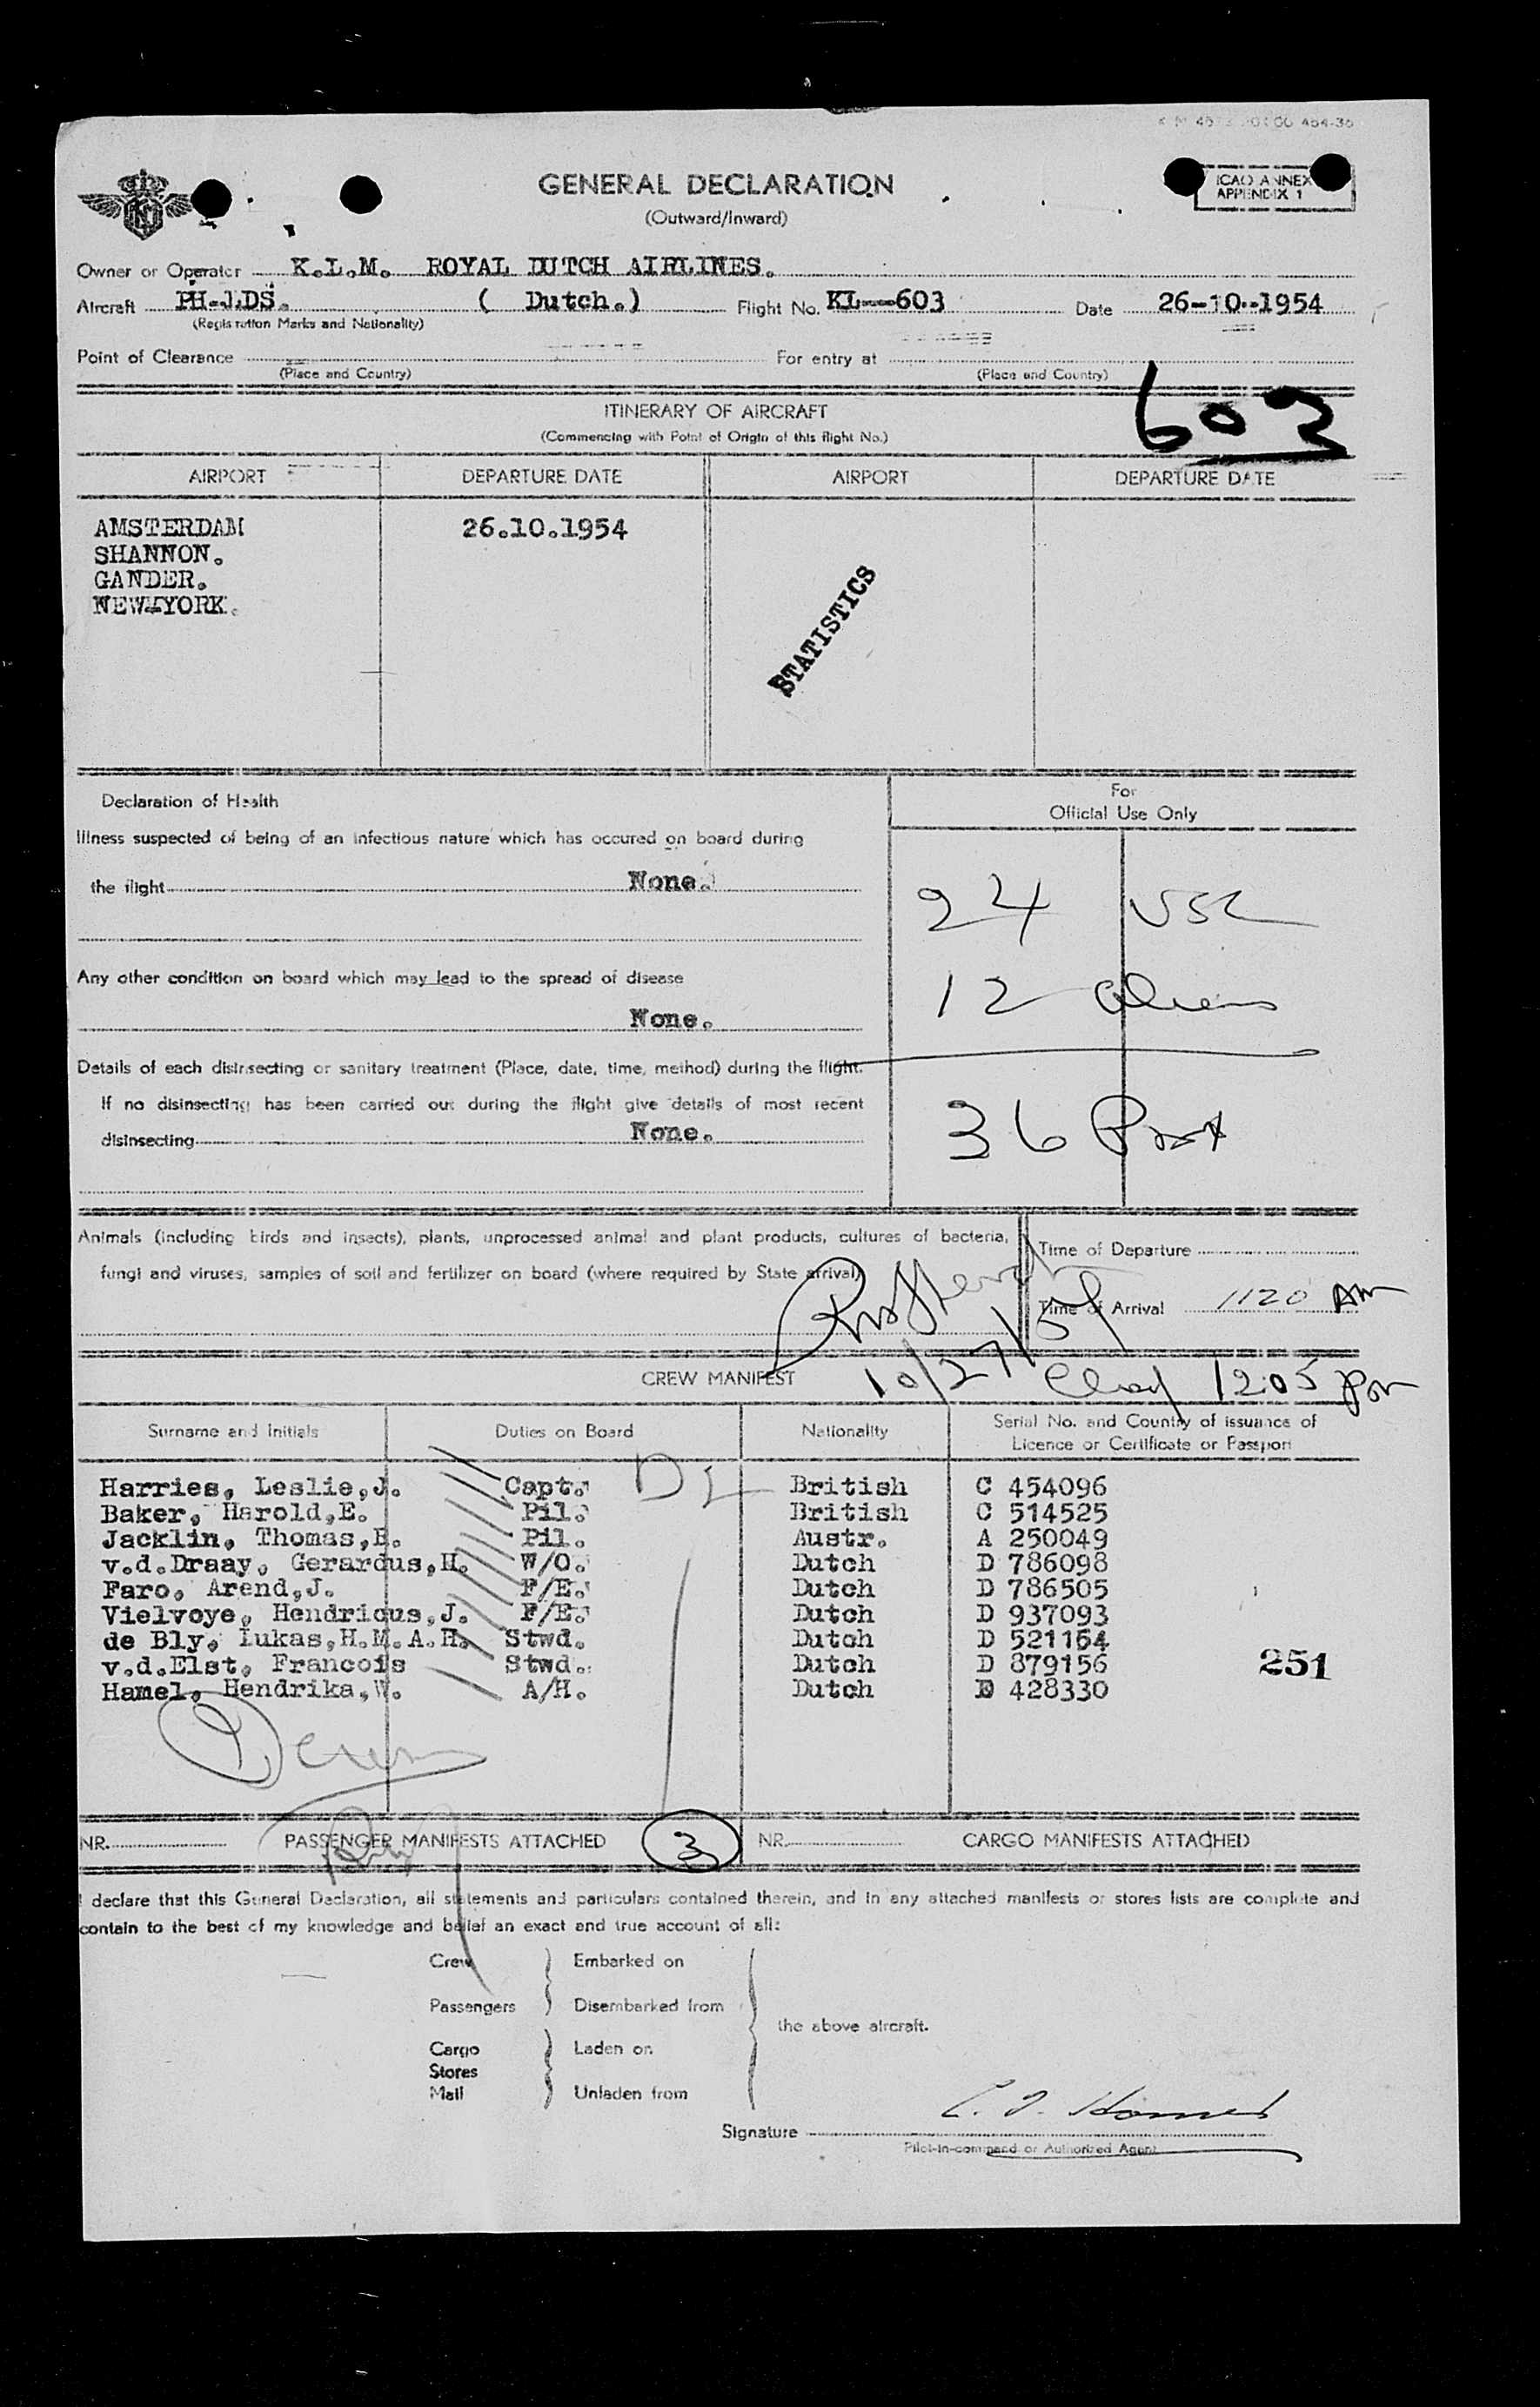 GENERAL DECLARATION
(Outward/Inward)
ICAO ANNEX
APPENDIX 1
Owner or Operator K.L.M. ROYAL DUTCH AIRLINES.
Aircraft PH-LDS. ( Dutch.) Flight No. KL---603 Date 26-10--1954
(Registration Marks and Nationality)
Point of Clearance For entry at
(Place and Country) (Place and Country)
603
ITINERARY OF AIRCRAFT
(Commencing with Point of Origin of this flight No.)
AIRPORT DEPARTURE DATE AIRPORT DEPARTURE DATE
AMSTERDAM 26.10.1954
SHANNON.
GANDER.
NEW-YORK.
STATISTICS
Declaration of Health
For
Official Use Only
Illness suspected of being of an infectious nature which has occured on board during
the flight None.
24 USC
Any other condition on board which may lead to the spread of disease
12 Aliens
None.
Details of each disinsecting or sanitary treatment (Place, date, time, method) during the flight.
If no disinsecting has been carried out during the flight give details of most recent
disinsecting None.
36
Animals (including birds and insects), plants, unprocessed animal and plant products, cultures of bacteria,
fungi and viruses, samples of soil and fertilizer on board (where required by State arrival)
Time of Departure
Time of Arrival 1120 AM
10/27/54
1205 pm
CREW MANIFEST
Surname and Initials Duties on Board Nationality Serial No. and Country of issuance of
Licence or Certificate or Passport
Harries, Leslie,J. Capt. British C 454096
Baker, Harold,E. Pil. British C 514525
Jacklin, Thomas,B. Pil. Austr. A 250049
v.d.Draay, Gerardus,H. W/O. Dutch D 786098
Faro, Arend,J. F/E. Dutch D 786505
Vielvoye, Hendricus,J. F/E. Dutch D 937093
de Bly, Lukas,H.M.A.H. Stwd. Dutch D 521164
v.d.Elst, Francois Stwd. Dutch D 879156
Hamel, Hendrika,W. A/H. Dutch D 428330
251
NR. PASSENGER MANIFESTS ATTACHED 3 NR. CARGO MANIFESTS ATTACHED
I declare that this General Declaration, all statements and particulars contained therein, and in any attached manifests or stores lists are complete and
contain to the best of my knowledge and belief an exact and true account of all:
Crew Embarked on
Passengers Disembarked from
the above aircraft.
Cargo Laden on
Stores
Mail Unladen from
Signature
Pilot-in-command or Authorized Agent